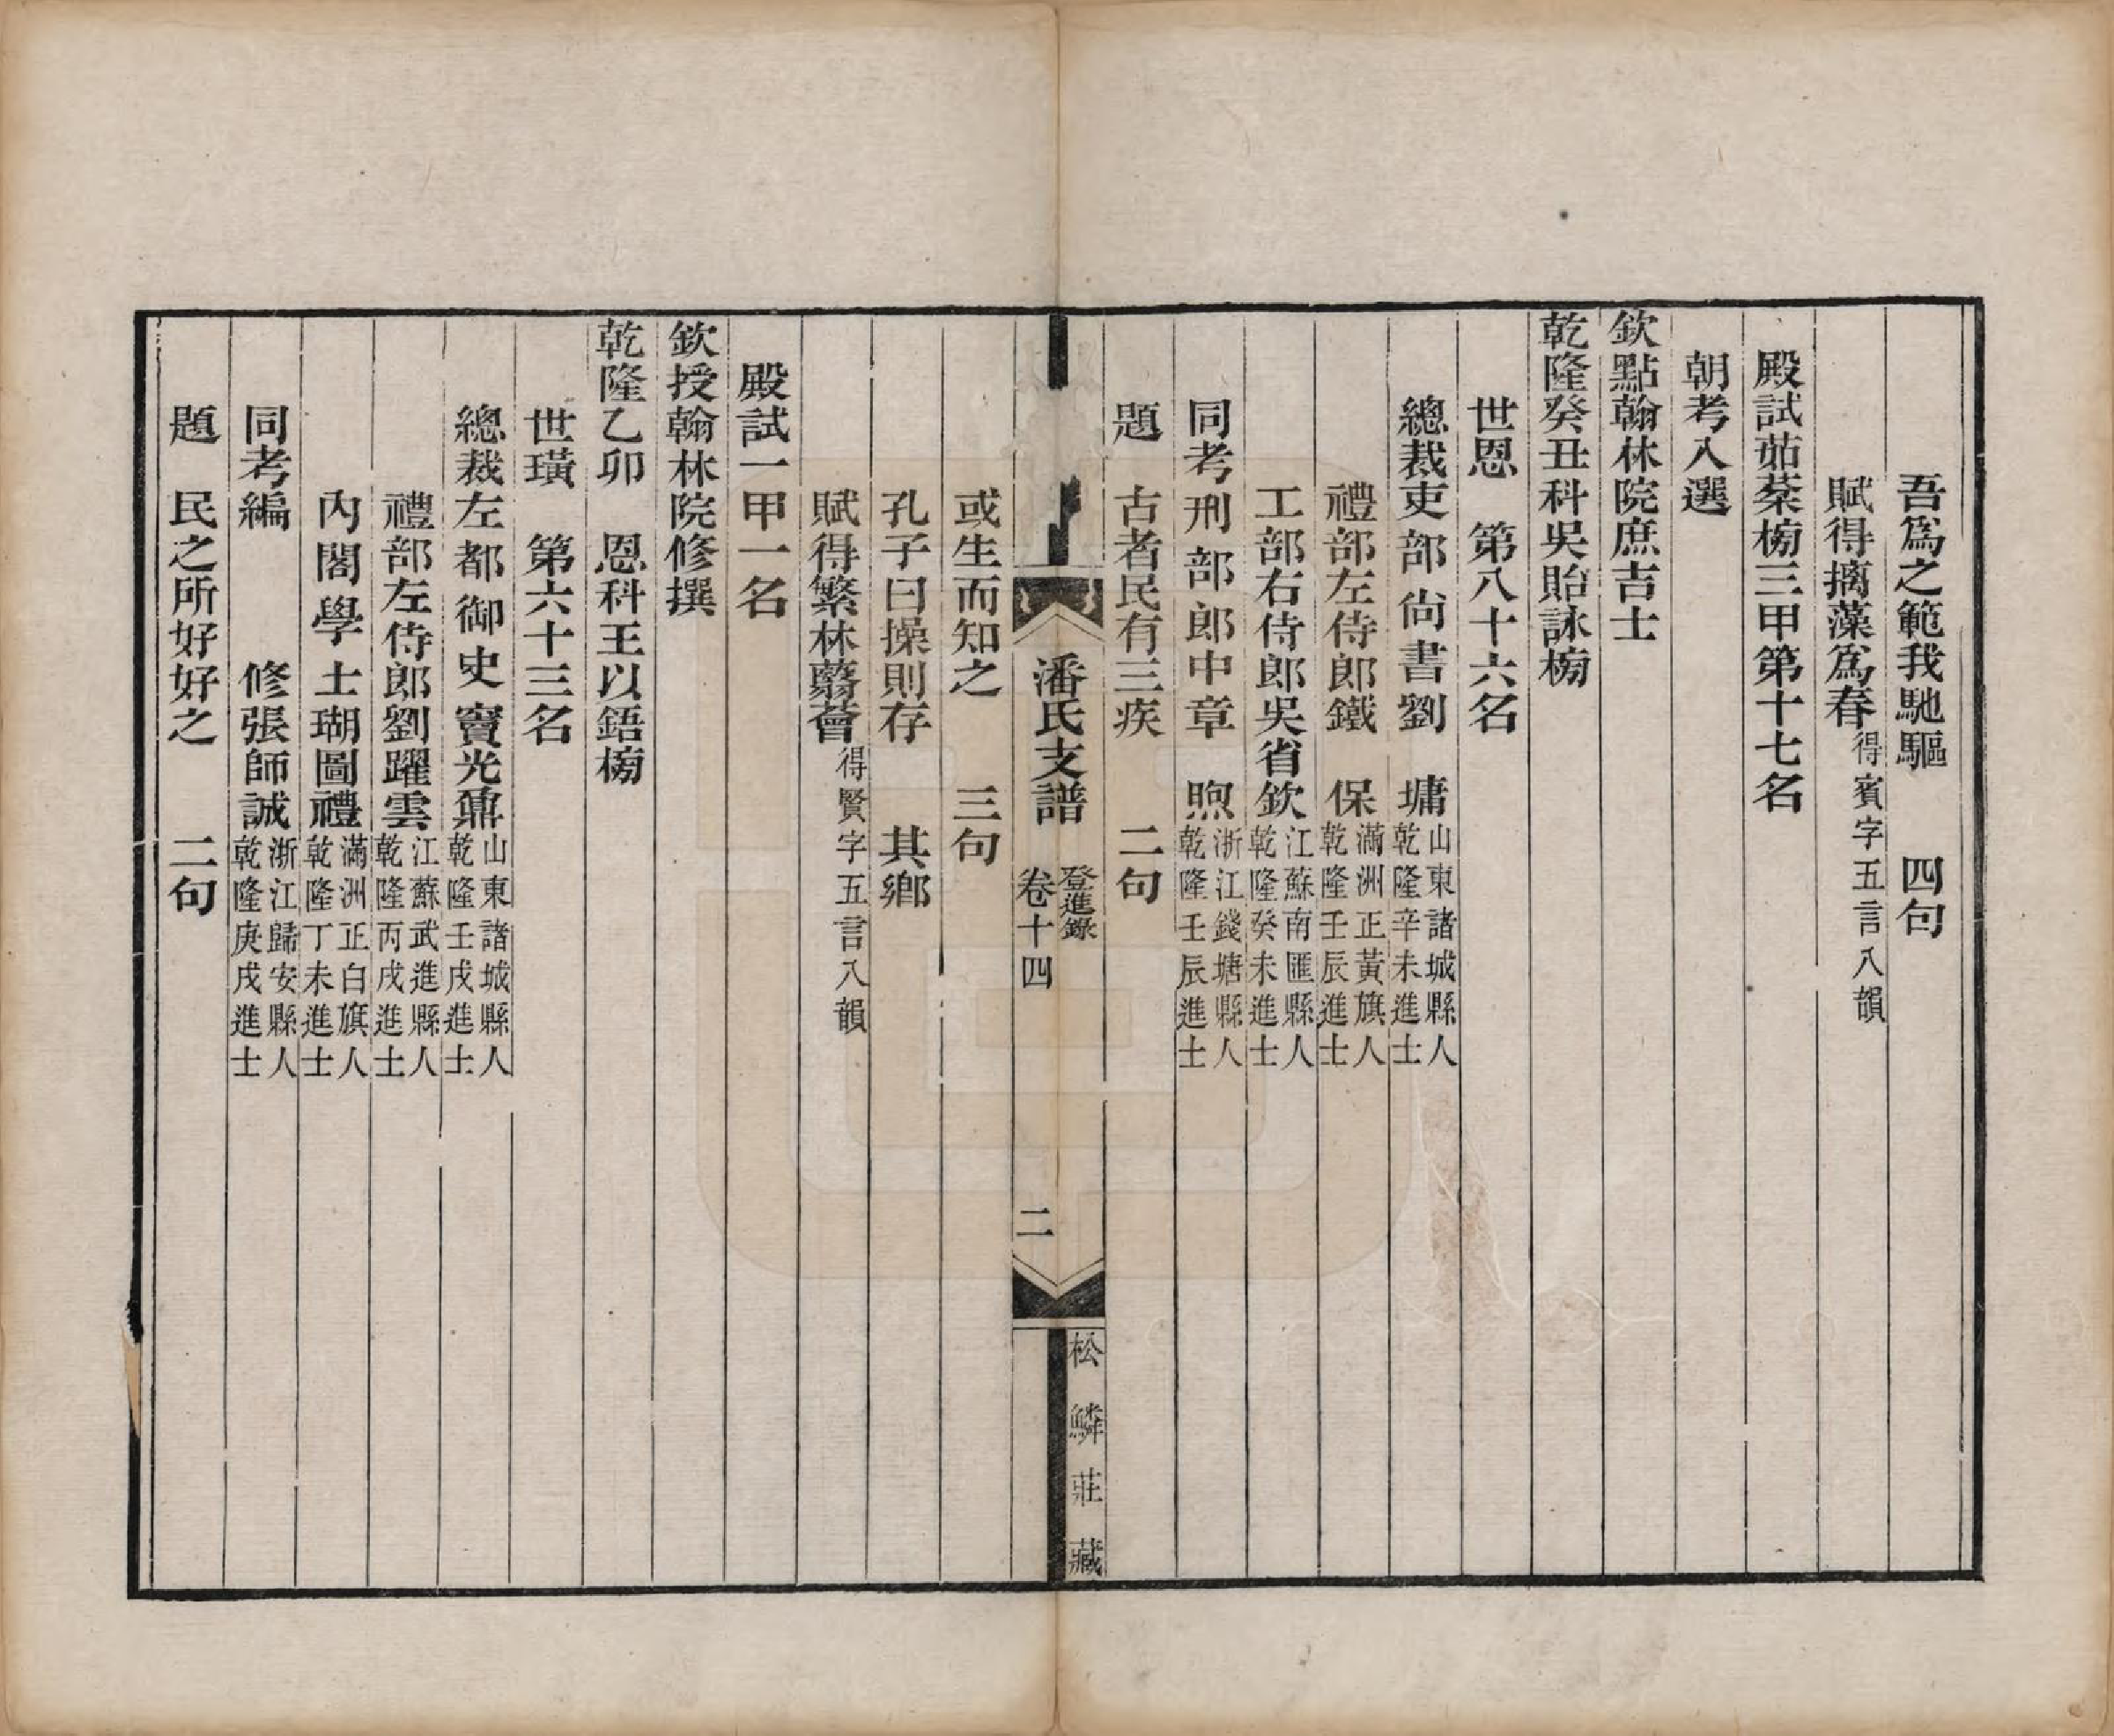 吾爲之範我馳驅　四句
賦得摛藻爲春得賓字五言八韻
殿試茹棻榜三甲第十七名
朝考入選
欽點翰林院庶吉士
乾隆癸丑科吳貽詠榜
世恩　第八十六名
總裁吏部尚書劉　墉山東諸城縣人乾隆辛未進士
禮部左侍郎鐵　保滿洲正黃旗人乾隆壬辰進士
工部右侍郎吳省欽江蘇南匯縣人乾隆癸未進士
同考刑部郎中章　煦浙江錢塘縣人乾隆壬辰進士
題　古者民有三疾　二句
潘氏支譜　登進錄卷十四　二
松鱗莊藏
或生而知之　三句
孔子曰操則存　其鄉
賦得繁林蘙薈得賢字五言八韻
殿試一甲一名
欽授翰林院修撰
乾隆乙卯　恩科王以鋙榜
世璜　第六十三名
總裁左都御史竇光鼐山東諸城縣人乾隆壬戌進士
禮部左侍郎劉躍雲江蘇武進縣人乾隆丙戌進士
內閣學士瑚圖禮滿洲正白旗人乾隆丁未進士
同考編　修張師誠浙江歸安縣人乾隆庚戌進士
題　民之所好好之　二句